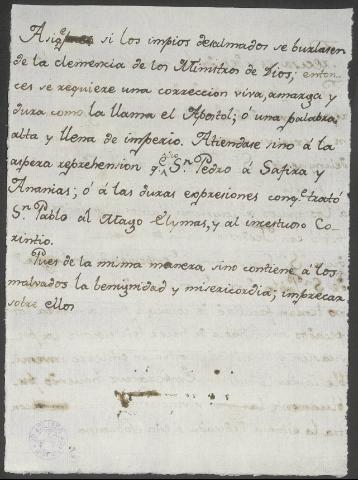 Asiq.e si los impios desalmados se burlasen
de la clemencia de los Ministros de Dios; enton-
ces se requiere una correccion viva, amarga y
dura como la llama el Apostol; ó una palabra
alta y llena de imperio. Atiendase sino á la
aspera reprehension q.e dio Sn. Pedro á Safira y
Ananias; ó á las duras expresiones conq.e trató
Sn. Pablo al Mago Elymas, y al incestuoso Co-
rintio.
Pues de la misma manera sino contiene á los
malvados la benignidad y misericordia; imprecar
sobre ellos